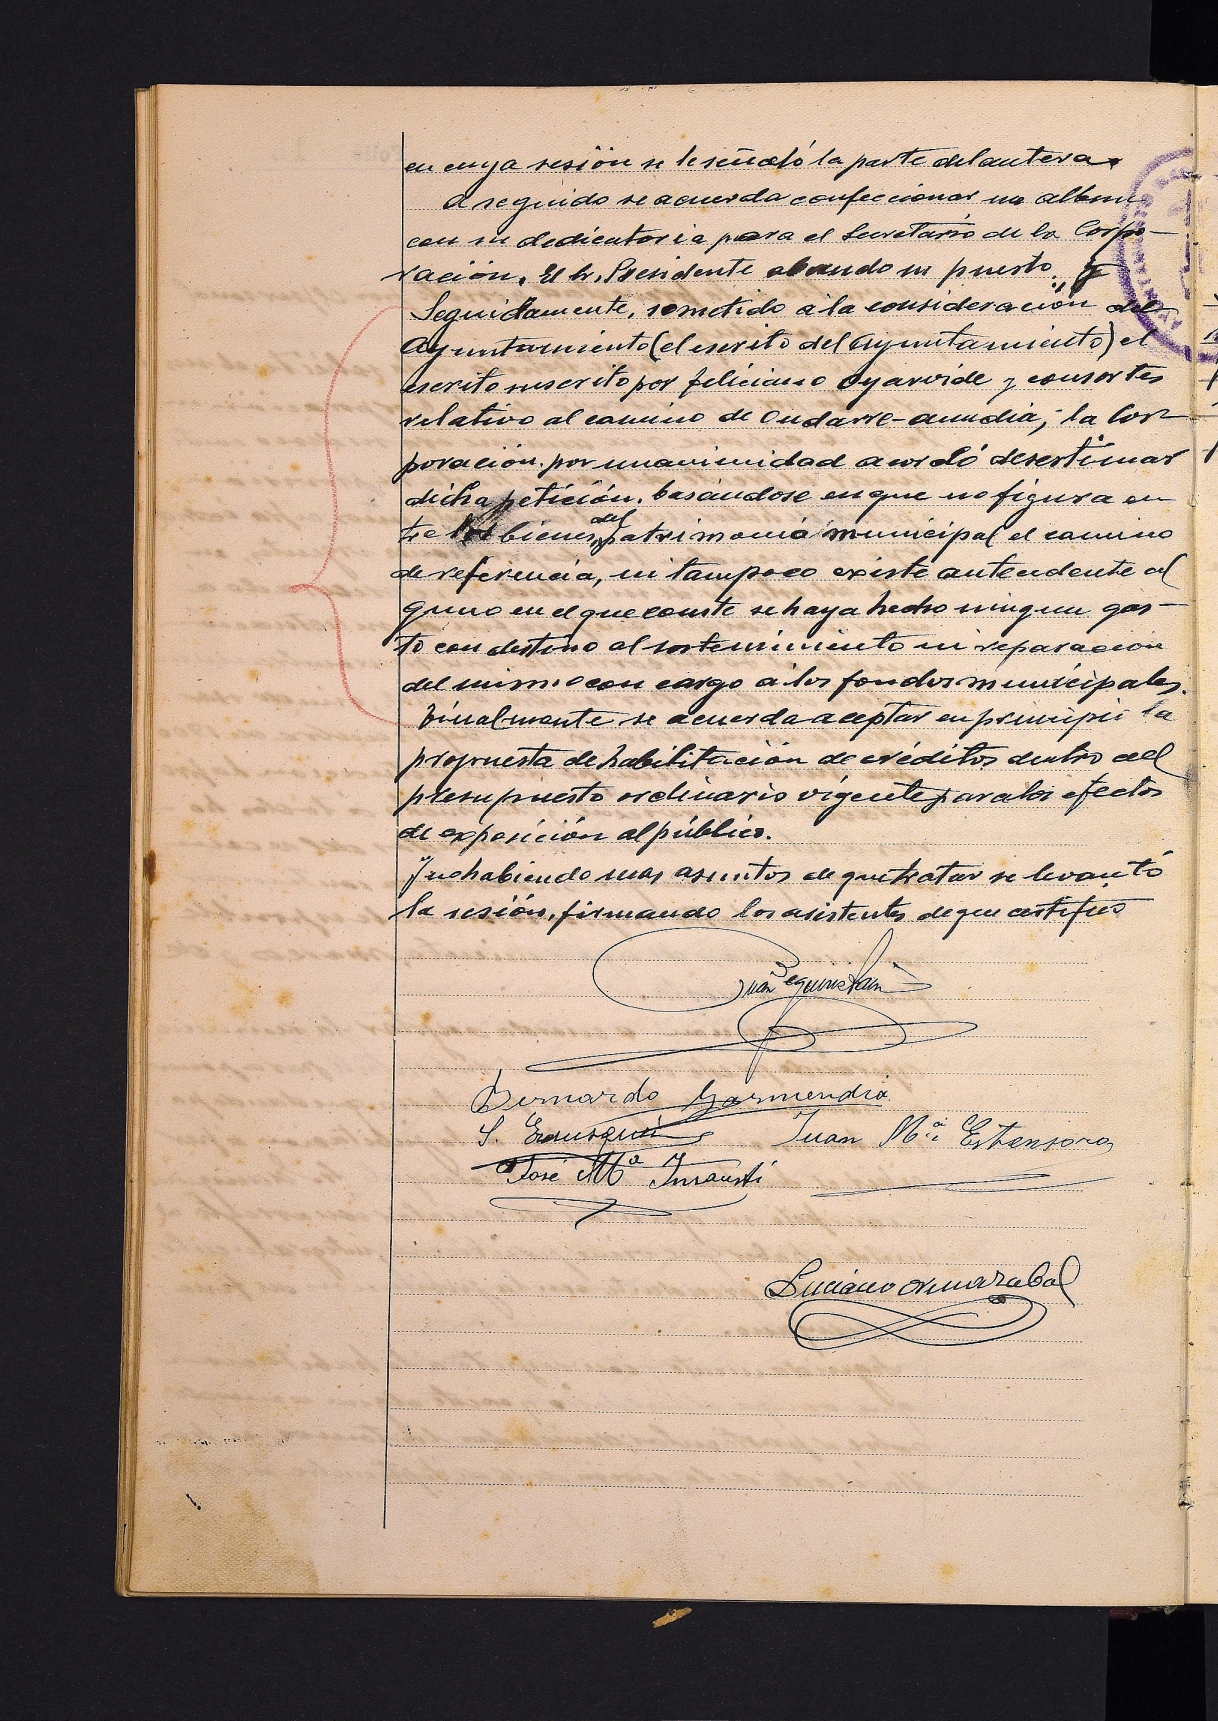 en cuya sesión se le señaló la parte delantera.
A seguido se acuerda confeccionar un album
con su dedicatoria para el Secretario de la Corpo-
ración. El Sr. Presidente abandó su puesto.
Seguidamente, sometido a la consideración del
Ayuntamiento (el escrito del Ayuntamiento) el
escrito suscrito por Feliciano Oyarvide y consortes
relativo al camino de Ondarre-aundia; la Cor-
poración por unanimidad acordó desestimar
dicha petición, basándose en que no figura en
tre los bienes del patrimonio municipal el camino
de referencia, ni tampoco existe antecedente al
guno en el que conste se haya hecho ningun gas-
to con destino al sostenimiento ni reparación
del mismo con cargo a los fondos municipales.
Finalmente se acuerda aceptar en principio la
propuesta de habilitación de créditos dentro del
presupuesto ordinario vigente para los efectos
de exposición al público.
Y no habiendo mas asuntos de que tratar se levantó
la sesión, firmando los asistentes de que certifico
Juan Eguinistain
Bernardo Garmendia
S. Juan Mª Estensoro
José Mª Insausti
Luciano Ormazabal
AYUNTAMIENTO